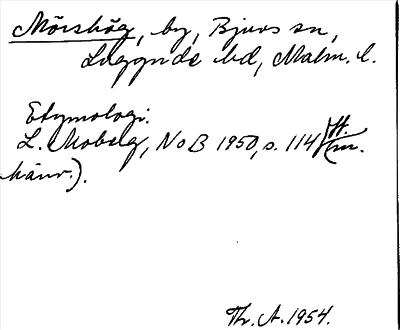 Mörshög, by, Bjuvs sn,
Luggude hd, Malm. l.
Etymologi.
L. Moberg, NoB 1950, s. 114 (H.
hänv.).
Th. A. 1954.